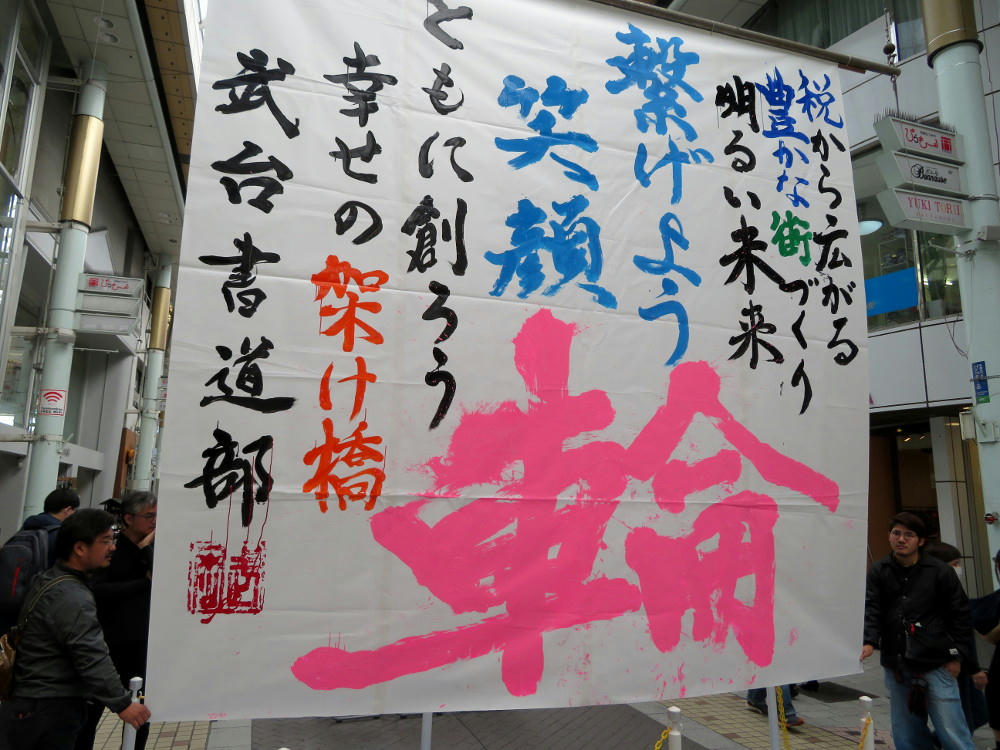 税から広がる
豊かな街づくり
明るい未来
繋げよう
笑顔
輪
ともに創ろう
幸せの架け橋
武台書道部
YUKI TORII